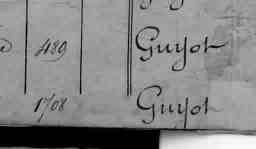 489 Guyot
1708 Guyot